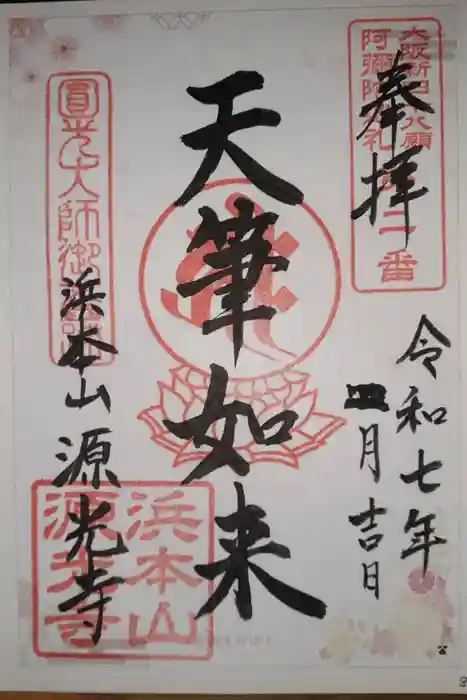 奉拝
大阪新四十八願
阿彌陀巡礼
二番
令和七年
四月吉日
天筆如来
圓光大師御
浜本山源光寺
浜本山
源光寺